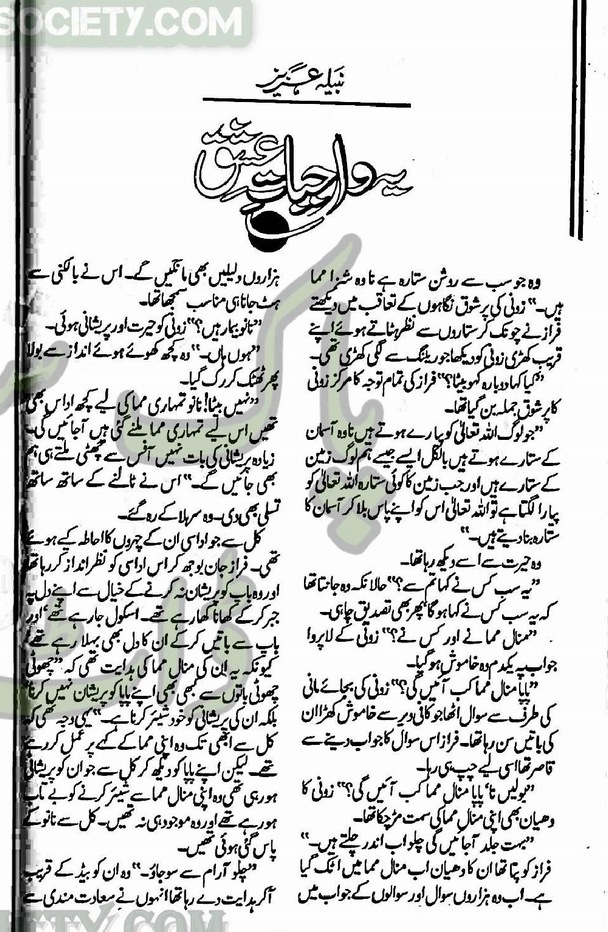 SOCIETY.COM
نبیلہ عزیز
یہ واجبات عشق
وہ جو سب سے روشن ستارہ ہے نا وہ شنزا مما
ہیں۔“ زونی کی پرشوق نگاہوں کے تعاقب میں دیکھتے
فراز نے چونک کر ستاروں سے نظر ہٹاتے ہوئے اپنے
قریب کھڑی زونی کو دیکھا جو ریلنگ سے لگی کھڑی تھی۔
”کیا کہا دوبارہ کہو بیٹا؟“ فراز کی تمام توجہ کا مرکز زونی
کا پرشوق جملہ بن گیا تھا۔
”جو لوگ اللہ تعالیٰ کو پیارے ہوتے ہیں نا وہ آسمان
کے ستارے ہوتے ہیں بالکل ایسے جیسے ہم لوگ زمین
کے ستارے ہیں اور جب زمین کا کوئی ستارہ اللہ تعالیٰ کو
پیارا لگتا ہے تو اللہ تعالیٰ اس کو اپنے پاس بلا کر آسمان کا
ستارہ بنا دیتے ہیں۔“
وہ حیرت سے اسے دیکھ رہا تھا۔
”یہ سب کس نے کہا تم سے؟“ حالانکہ وہ جانتا تھا
کہ یہ سب کس نے کہا ہو گا پھر بھی تصدیق چاہی۔
”منال مما نے اور کس نے؟“ زونی کے لاپروا
جواب پہ یکدم وہ خاموش ہو گیا۔
”پاپا منال مما کب آئیں گی؟“ زونی کی بجائے مانی
کی طرف سے سوال اٹھا جو کافی دیر سے خاموش کھڑا ان
کی باتیں سن رہا تھا۔ فراز اس سوال کا جواب دینے سے
قاصر تھا اسی لیے چپ ہی رہا۔
”بولیں نا‘ پاپا منال مما کب آئیں گی؟“ زونی کا
دھیان بھی اپنی منال مما کی سمت مڑ چکا تھا۔
”بہت جلد آ جائیں گی چلو اب اندر چلتے ہیں۔“
فراز کو پتا تھا ان کا دھیان اب منال مما میں اٹک گیا
ہے۔ اب وہ ہزاروں سوال اور سوالوں کے جواب میں
ہزاروں دلیلیں بھی مانگیں گے۔ اس نے بالکنی سے
ہٹ جانا ہی مناسب سمجھا تھا۔
”نانو بیمار ہیں؟“ زونی کو حیرت اور پریشانی ہوئی۔
”ہوں ہاں۔“ وہ کچھ کھوئے ہوئے انداز سے بولا
پھر ٹھٹک کر رک گیا۔
”نہیں بیٹا! نانو تمہاری مما کی لیے کچھ اداس بھی
تھیں اس لیے تمہاری مما ملنے گئی ہیں آ جائیں گی۔
زیادہ پریشانی کی بات نہیں آفس سے چھٹی ملتے ہی ہم
بھی جائیں گے۔“ اس نے ٹالنے کے ساتھ ساتھ
تسلی بھی دی۔ وہ سر ہلا کے رہ گئے۔
کل سے جو اداسی ان کے چہروں کا احاطہ کے ہوئے
تھی۔ فراز جان بوجھ کر اس اداسی کو نظر انداز کر رہا تھا
اور وہ باپ کو پریشان نہ کرنے کے خیال سے اپنے دل پہ
جبر کر کے کھانا کھا رہے تھے۔ اسکول جا رہے تھے‘ اور
باپ سے باتیں کر کے ان کا دل بھی بہلا رہے تھے
کیونکہ یہ ان کی منال مما کی ہدایت تھی کہ ”چھوٹی
چھوٹی باتوں سے بھی بھی اپنے پاپا کو پریشان نہیں کرنا
بلکہ ان کی پریشانی کو خود شیئر کرنا ہے۔“ یہی وجہ تھی کہ
کل سے ابھی تک وہ اپنی مما کے کہے پر عمل کر رہے
تھے۔ لیکن اپنے پاپا کو دیکھ کر کل سے جو ان کو پریشانی
ہو رہی تھی وہ اپنی منال مما سے شیئر کرنے کو بے تاب
ہو رہے تھے اور وہ موجود ہی نہ تھیں۔ کل سے نانو کے
پاس گئی ہوئی تھیں۔
”چلو آرام سے سو جاؤ۔“ وہ ان کو بیڈ کے قریب
آ کر ہدایت دے رہا تھا انہوں نے سعادت مندی سے
پاک
CIETY.COM